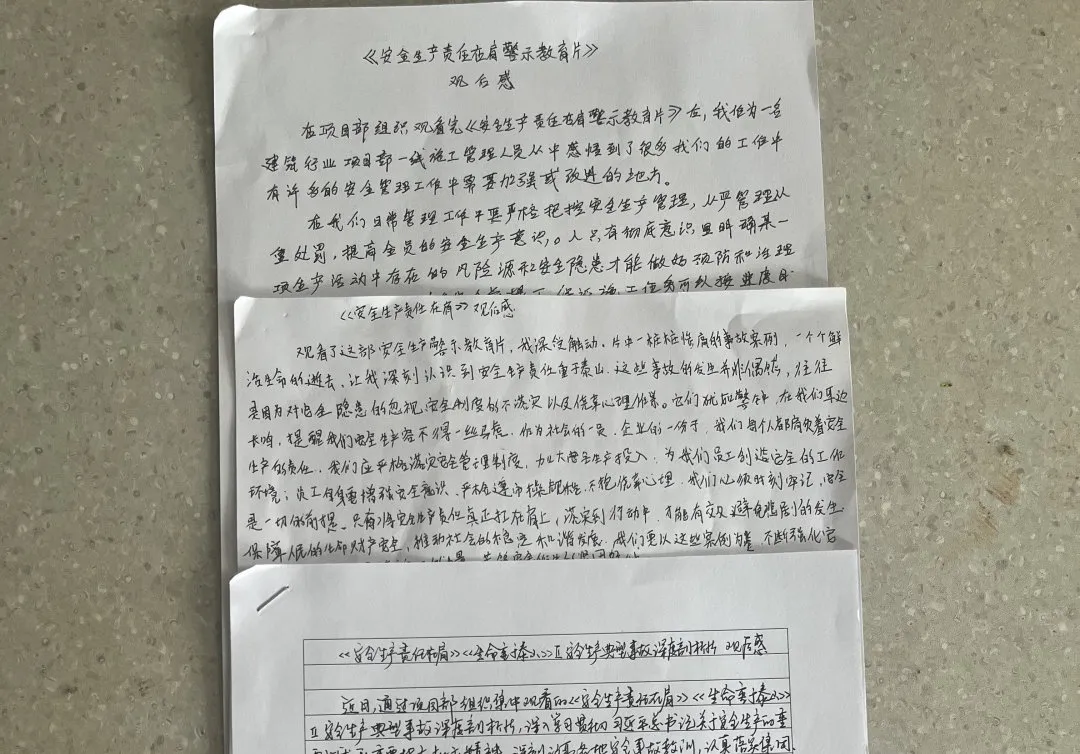 《安全生产责任在肩警示教育片》
观后感
在项目部组织观看完《安全生产责任在肩警示教育片》后，我作为一名
建筑行业项目部一线施工管理人员从中感悟到了很多我们的工作中
有许多的安全管理工作中需要加强或改进的地方。
在我们日常管理工作中要严格把控安全生产管理，从严管理从
重处罚，提高全员的安全生产意识，。人只有彻底意识里明确某一
项生产活动中存在的风险源和安全隐患才能做好预防和治理
《安全生产责任在肩》观后感
观看了这部安全生产警示教育片，我深受触动。片中一桩桩惨痛的事故案例，一个个鲜
活生命的逝去，让我深刻认识到安全生产责任重于泰山。这些事故的发生并非偶然，往往
是因为对安全隐患的忽视、安全制度的不落实以及侥幸心理作祟。它们犹如警钟，在我们耳边
长鸣，提醒我们安全生产容不得一丝马虎。作为社会的一员、企业的一份子，我们每个人都肩负着安全
生产的责任。我们应严格落实安全管理制度，加大安全生产投入，为我们员工创造安全的工作
环境；员工自身要增强安全意识，严格遵守操作规程，不抱侥幸心理。我们必须时刻牢记，安全
是一切的前提。只有将安全生产责任真正扛在肩上，落实到行动中，才能有效避免悲剧的发生，
保障人民的生命财产安全，推动社会的稳定和谐发展。我们要以这些案例为鉴，不断强化安
《安全生产责任在肩》《生命重于泰山》及安全生产典型事故深度剖析片 观后感
近日，通过项目部组织集中观看的《安全生产责任在肩》《生命重于泰山》
及安全生产典型事故深度剖析片，深入学习贯彻习近平总书记关于安全生产的重